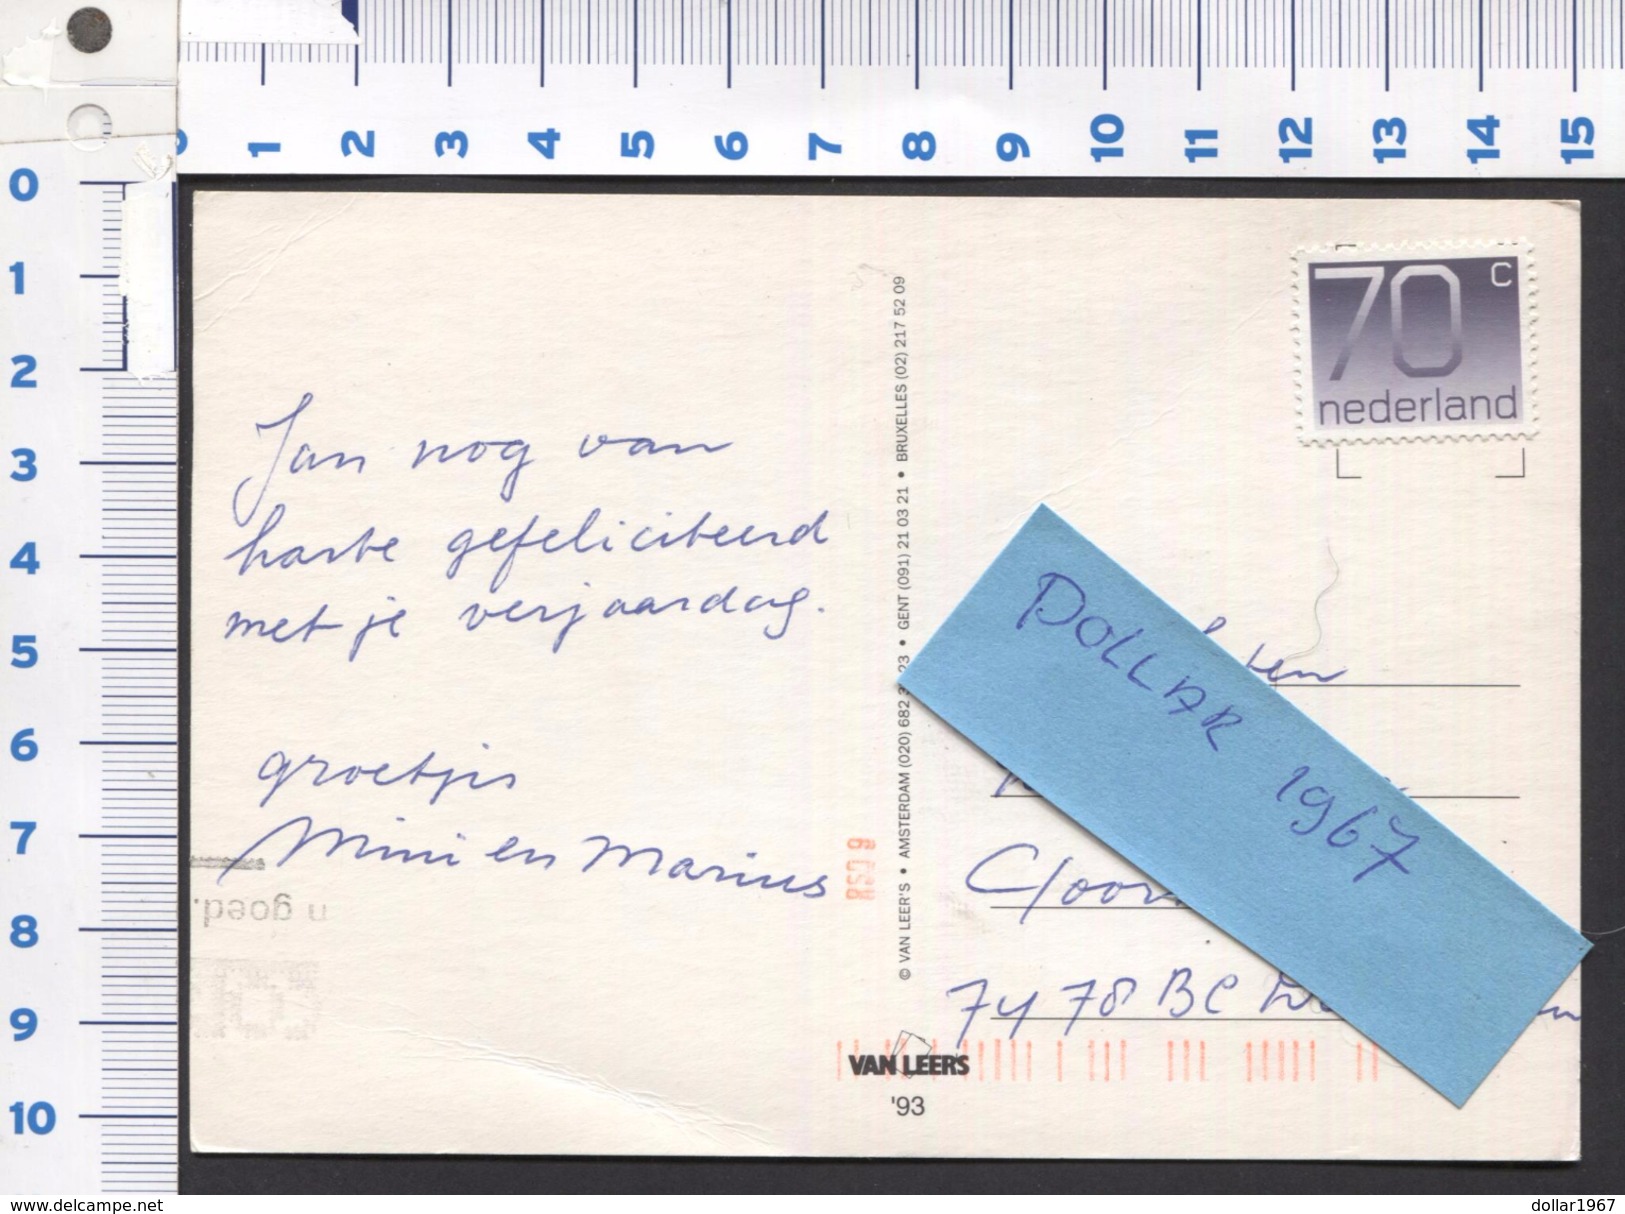 1 2 3 4 5 6 7 8 9 10 11 12 13 14 15
0
1
2
3
4
5
6
7
8
9
10
70 c
nederland
Jan nog van
harte gefeliciteerd
met je verjaardag.
groetjes
Mini en Marius
n goed.
© VAN LEER'S • AMSTERDAM (020) 682 23 • GENT (091) 21 03 21 • BRUXELLES (02) 217 52 09
DOLLAR 1967
7478 BC
VAN LEER'S
'93
delcampe.net
dollar1967